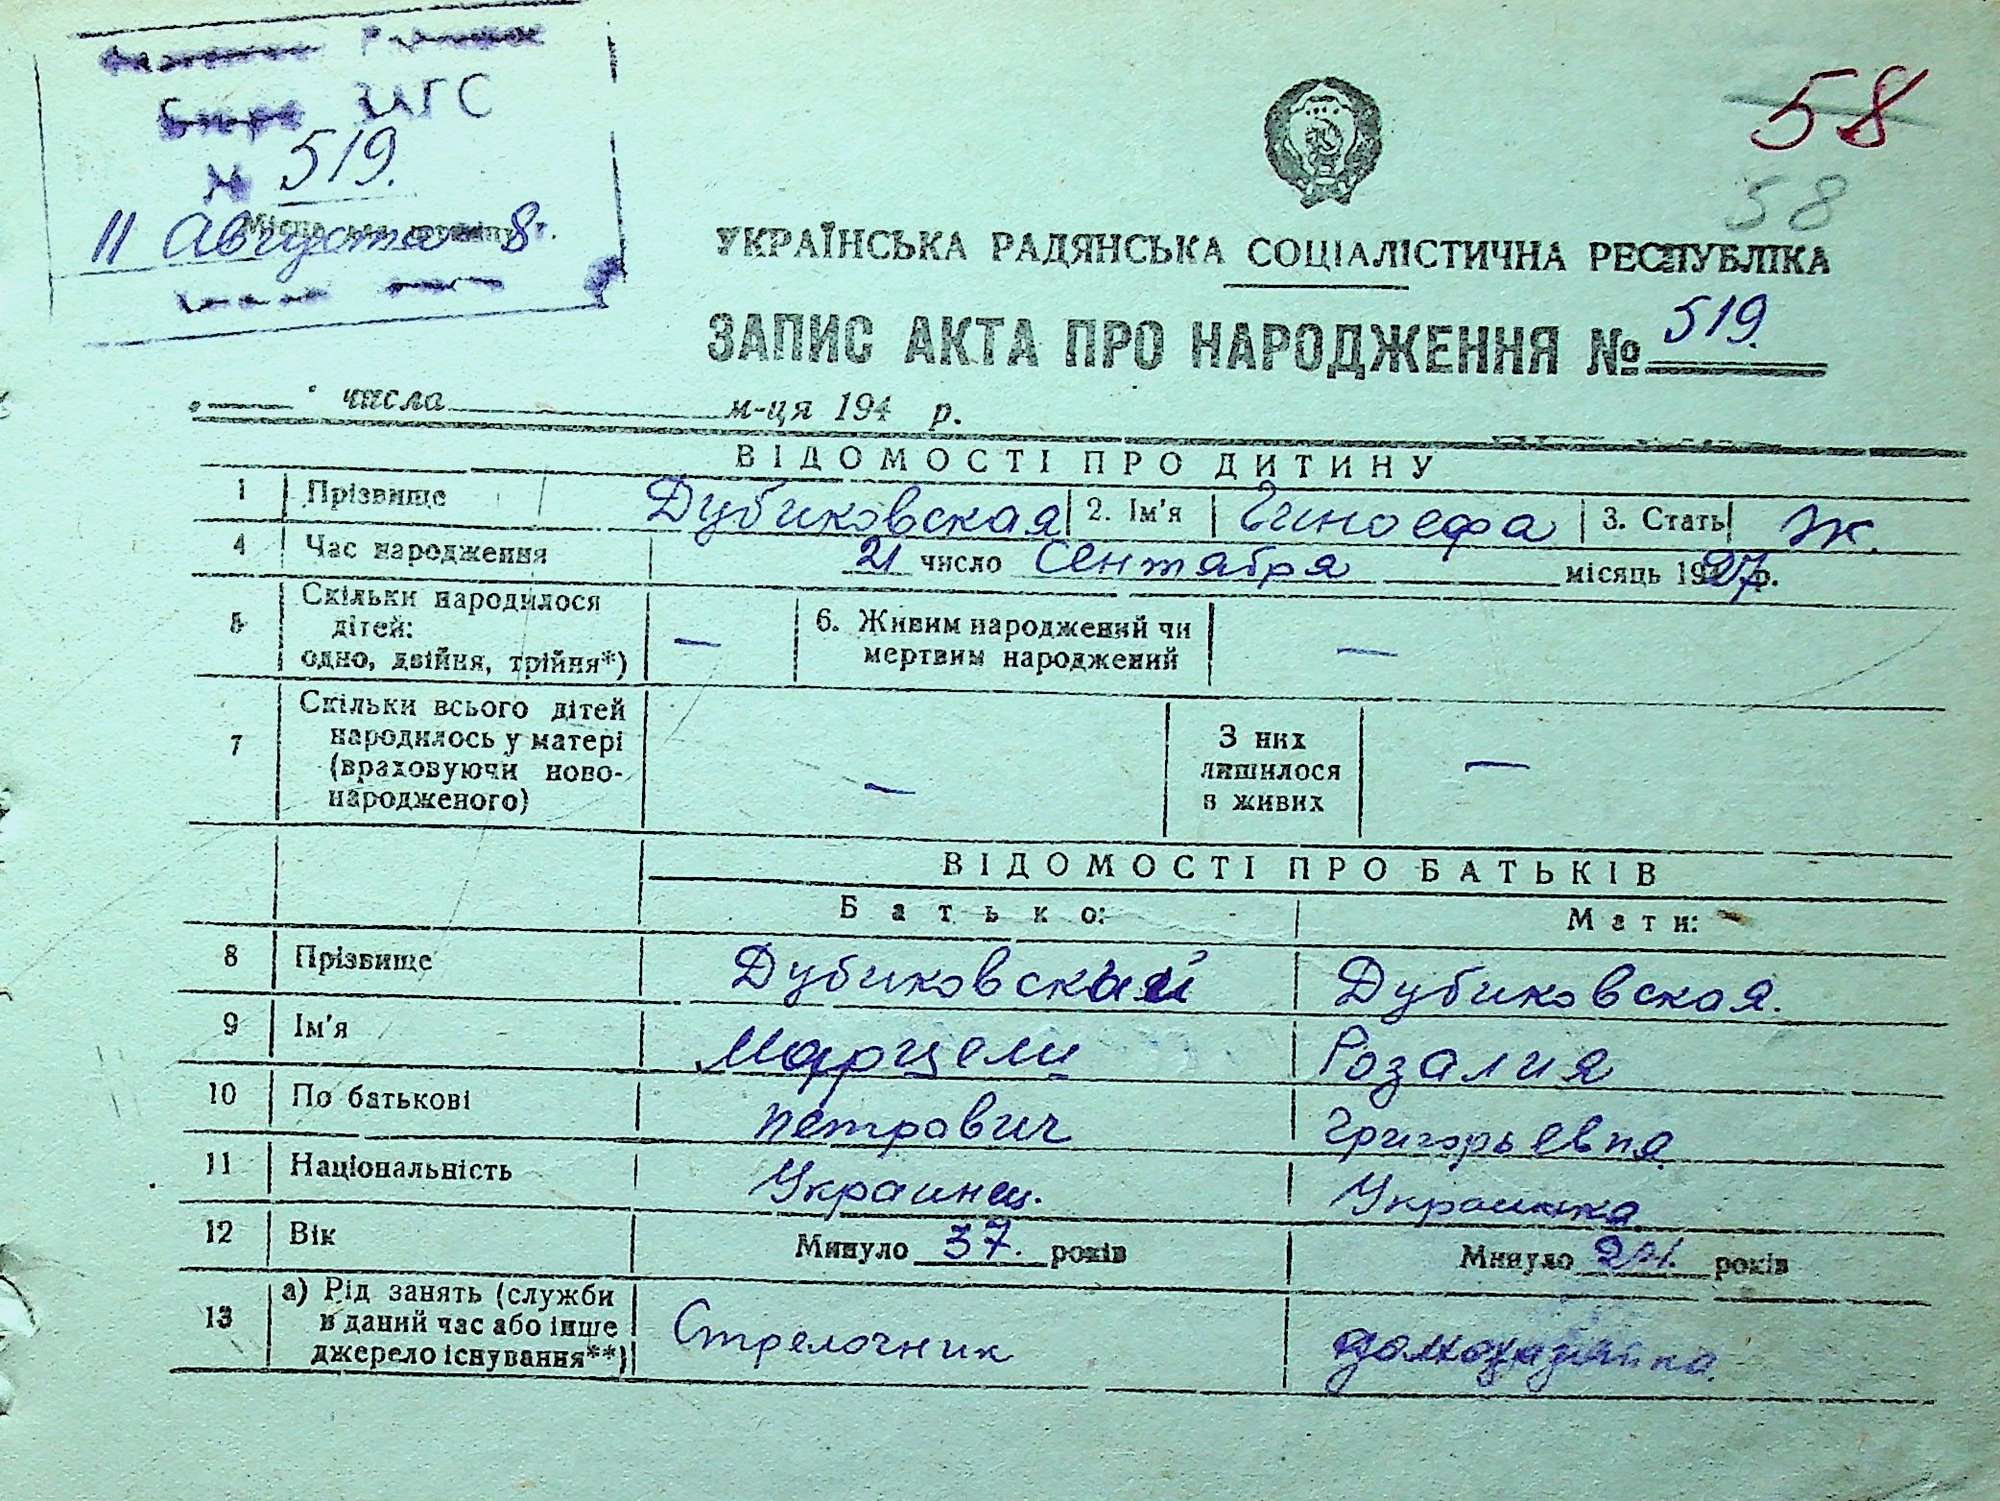 Бюро ЗАГС
№ 519.
11 Августа 8 г.
58
58
УКРАЇНСЬКА РАДЯНСЬКА СОЦІАЛІСТИЧНА РЕСПУБЛІКА
ЗАПИС АКТА ПРО НАРОДЖЕННЯ № 519.
числа м-ця 194 р.
ВІДОМОСТІ ПРО ДИТИНУ
1 Прізвище Дубиковская 2. Ім'я Гиноефа 3. Стать Ж.
4 Час народження 21 число Сентября місяць 1927 р.
5 Скільки народилося
дітей:
одно, двійня, трійня*) —
6. Живим народжений чи
мертвим народжений —
7 Скільки всього дітей
народилось у матері
(враховуючи ново-
народженого) —
З них
лишилося
в живих —
ВІДОМОСТІ ПРО БАТЬКІВ
Батько: Мати:
8 Прізвище Дубиковский Дубиковская.
9 Ім'я Марцели Розалия
10 По батькові Петрович Григорьевна
11 Національність Украинец. Украинка.
12 Вік Минуло 37. років Минуло років
13 а) Рід занять (служби
в даний час або інше
джерело існування**) Стрелочник домохозяйка.